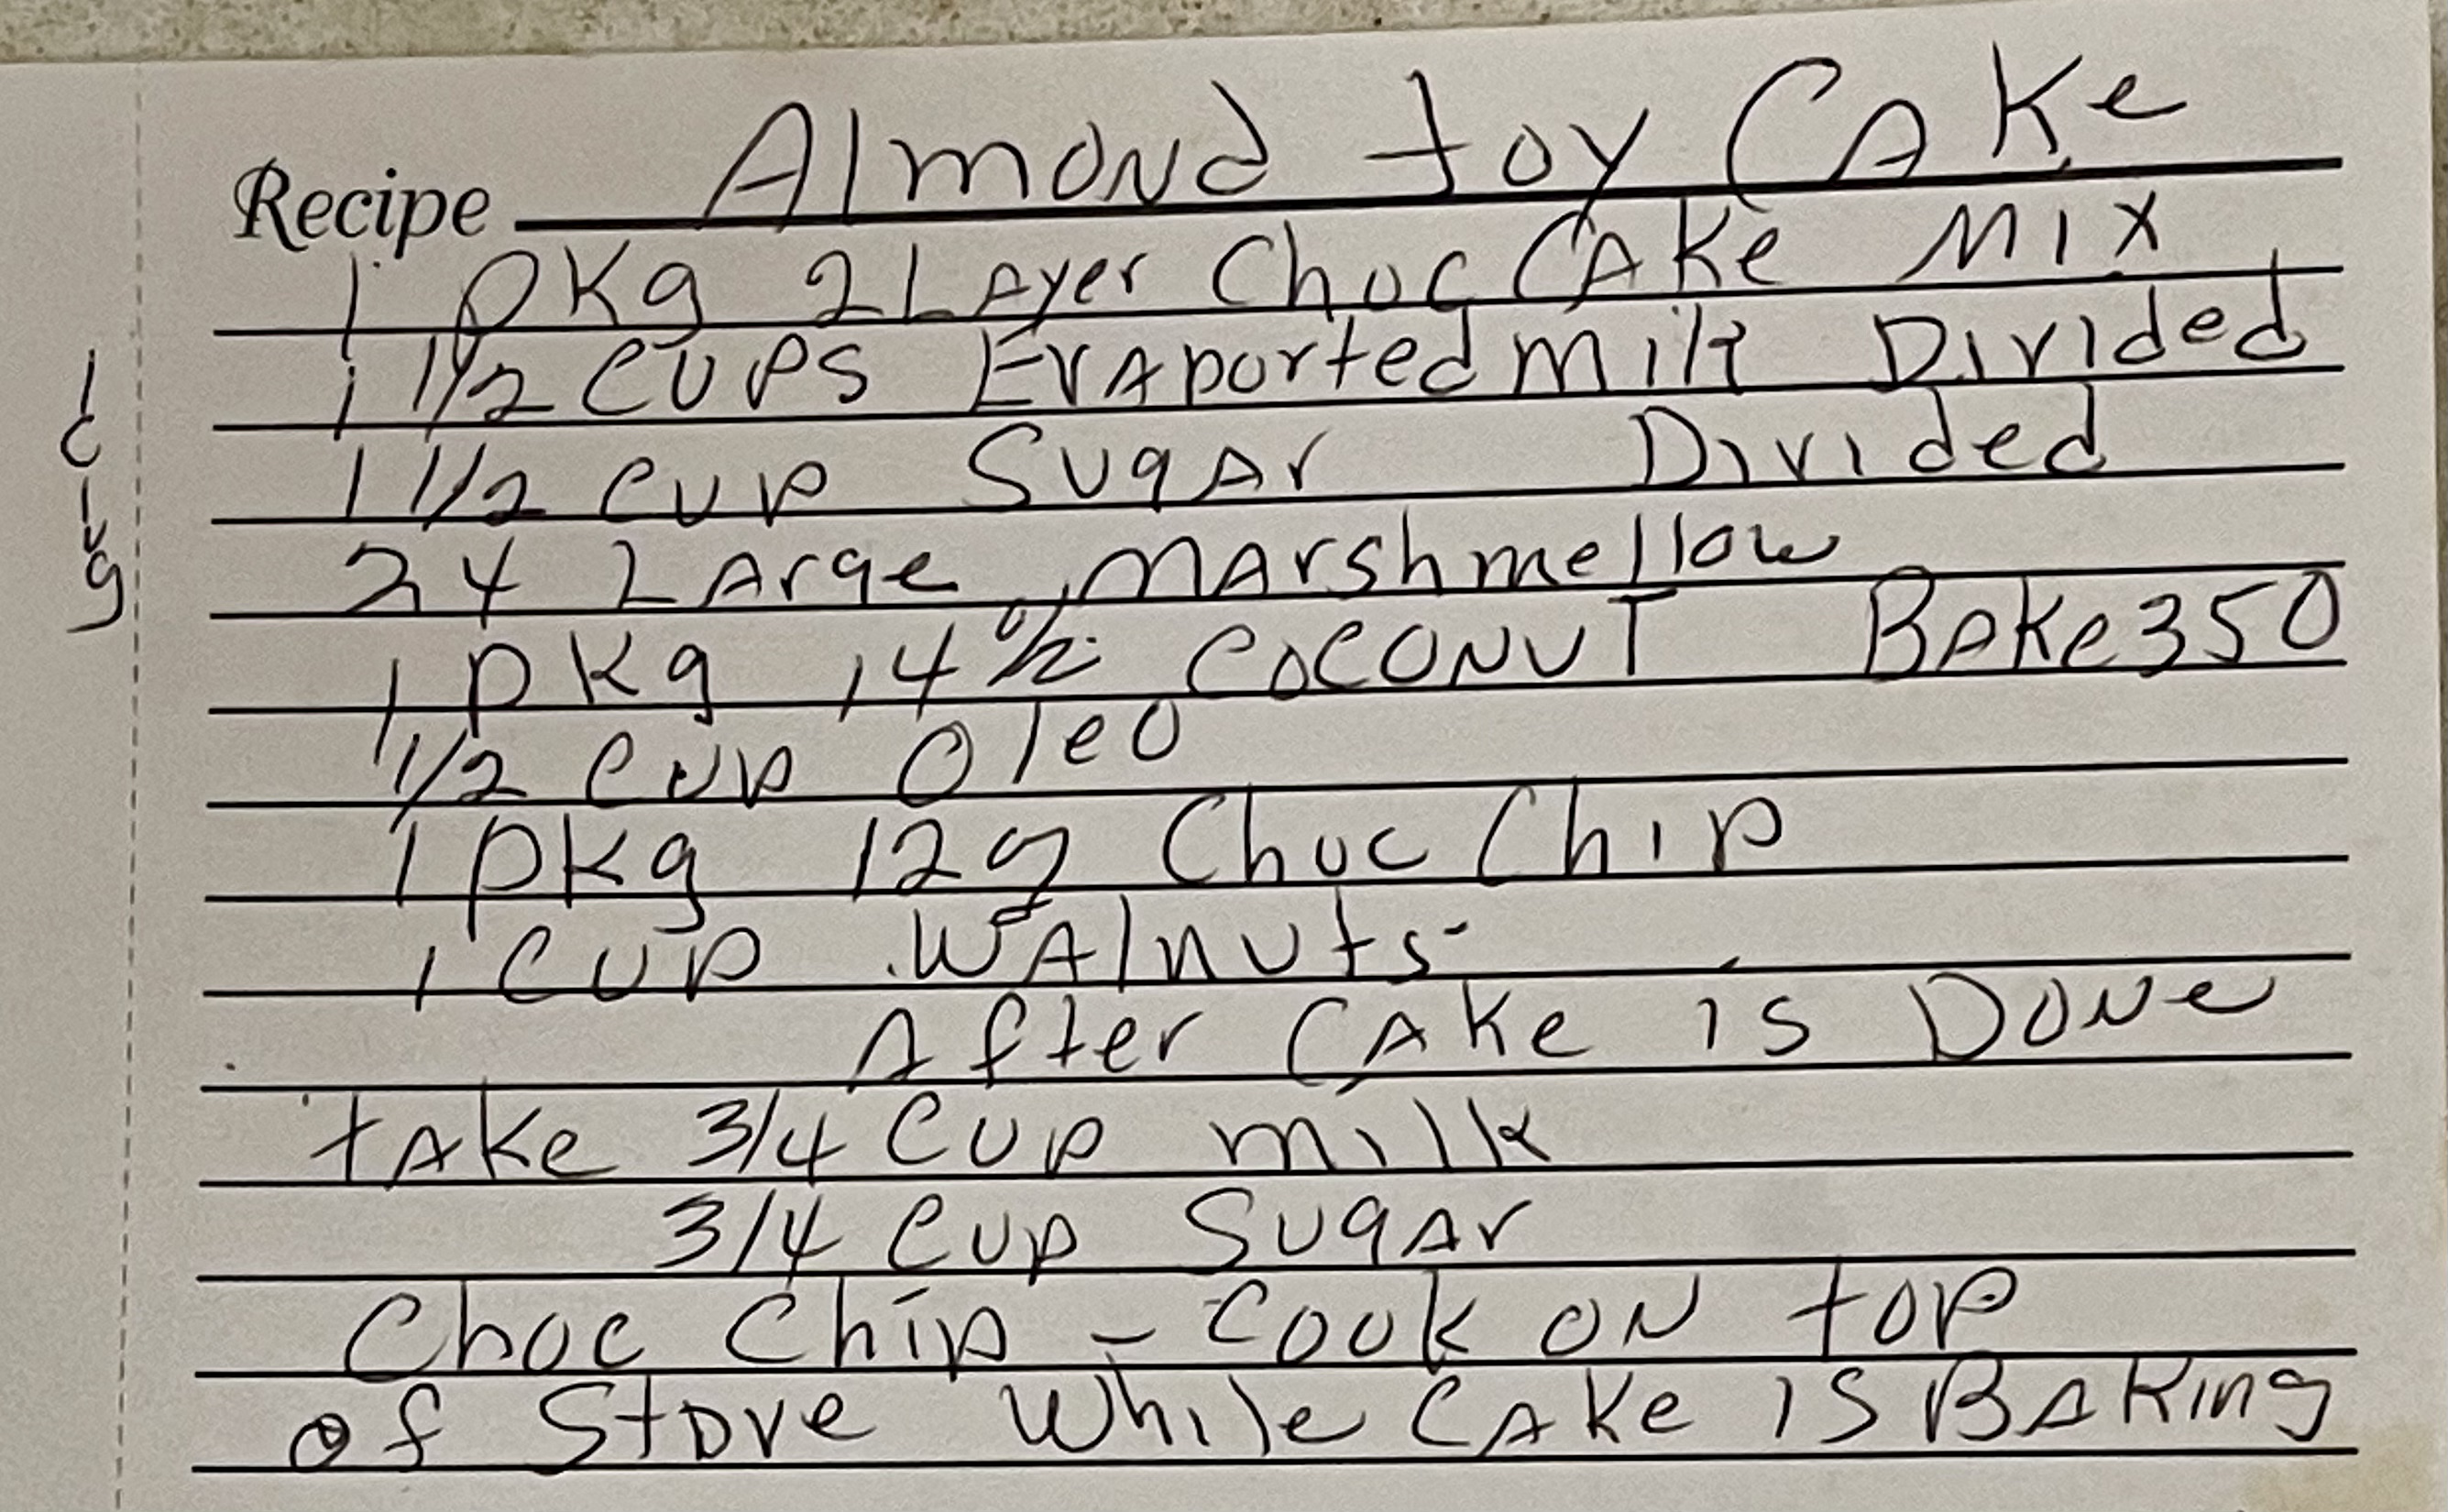 Recipe Almond Joy Cake
1 pkg 2 Layer Choc Cake Mix
1 1/2 cups Evaported Milk Divided
1 1/2 cup Sugar Divided
24 Large Marshmellow
1 pkg 14 oz Coconut Bake 350
1/2 cup Oleo
1 pkg 12 oz Choc Chip
1 cup Walnuts
After Cake is Done
take 3/4 cup milk
3/4 cup Sugar
Choc Chip - Cook on top
of Stove While Cake is Baking
Icing